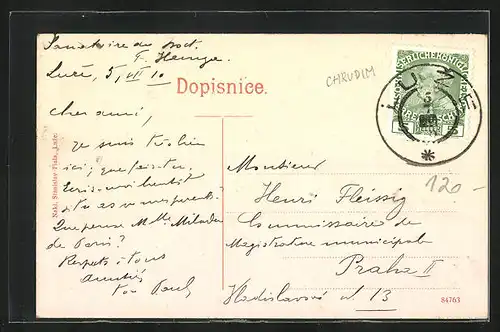 Sanatoire du doct.
F. Hamza.
Luže, 5/VII 10
CHRUDIM
Dopisnice.
LUŽE
5
Cher ami,
je suis très bien
ici; que fais-tu.
Ecris-moi bientôt
si tu as vu mes parents.
Que pense Mlle Milada
de Paris?
Respects à tous
amitiés
ton Paul
Nakl. Stanislav Fiala, Luže.
120-
Monsieur
Henri Fleissig
Commissaire de
Magistrature municipale
Praha II
Vladislavova ul. 13
84763